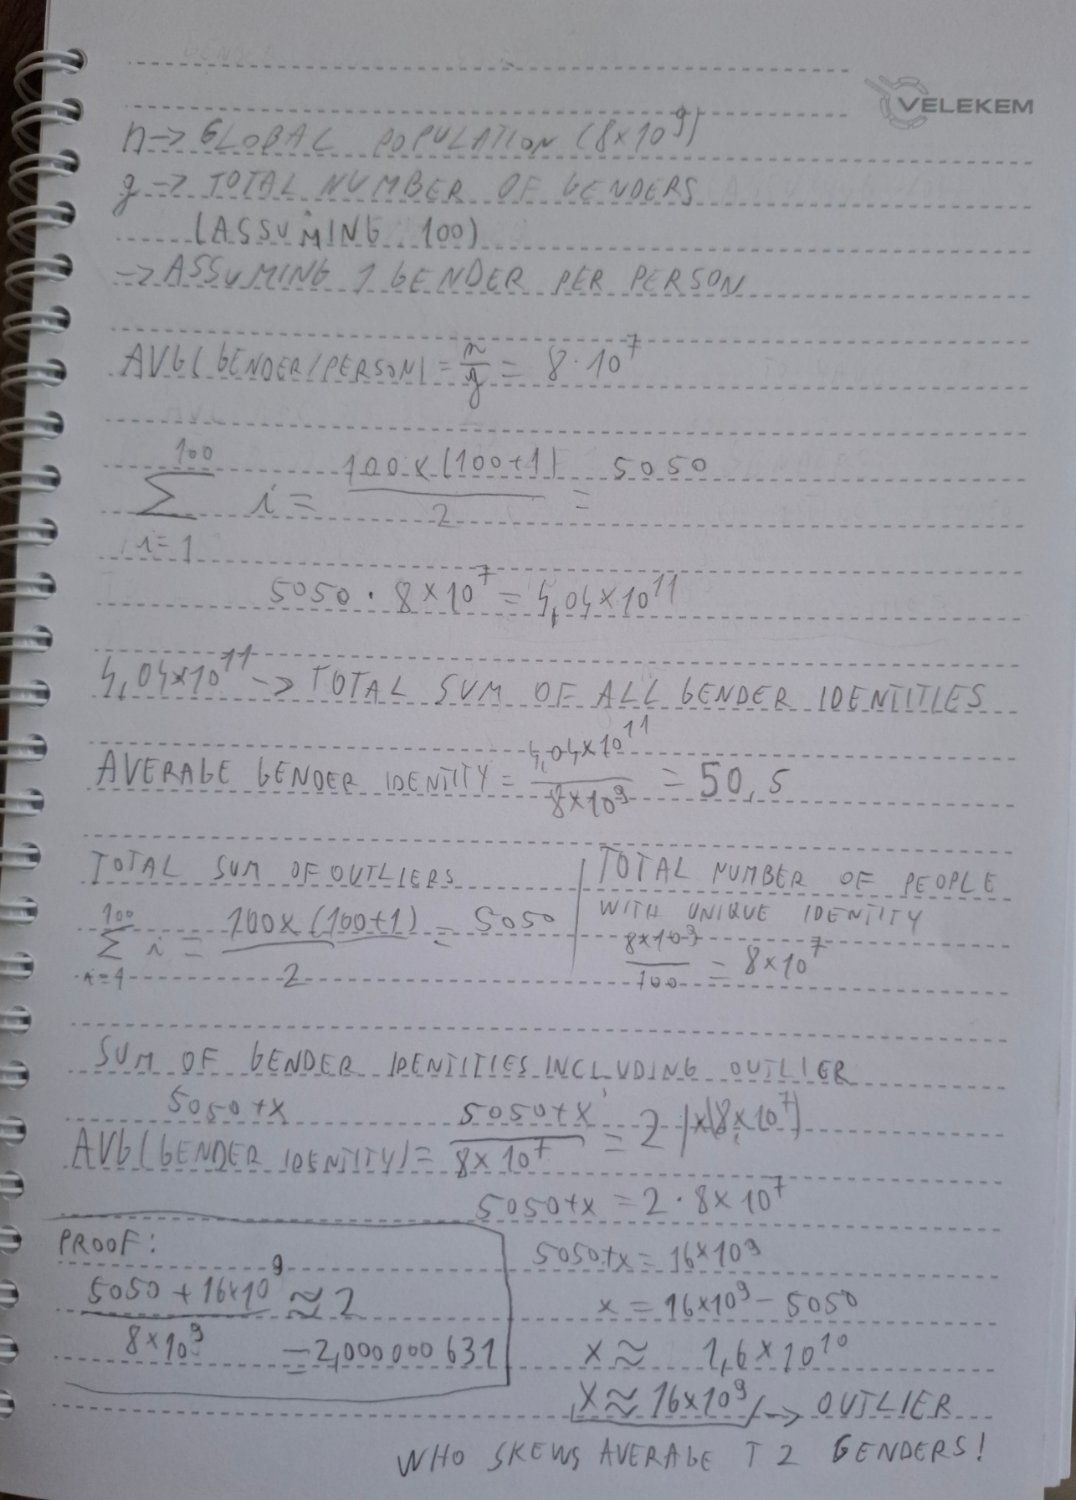 VELEKEM
n -> GLOBAL POPULATION (8×10⁹)
g -> TOTAL NUMBER OF GENDERS
(ASSUMING 100)
=> ASSUMING 1 GENDER PER PERSON
AVG(GENDER/PERSON) = n/g = 8·10⁷
∑_{i=1}^{100} i = 100×(100+1)/2 = 5050
5050 · 8×10⁷ = 4,04×10¹¹
4,04×10¹¹ -> TOTAL SUM OF ALL GENDER IDENTITIES
AVERAGE GENDER IDENTITY = 4,04×10¹¹/8×10⁹ = 50,5
TOTAL SUM OF OUTLIERS
∑_{i=1}^{100} i = 100×(100+1)/2 = 5050
TOTAL NUMBER OF PEOPLE
WITH UNIQUE IDENTITY
8×10⁹/100 = 8×10⁷
SUM OF GENDER IDENTITIES INCLUDING OUTLIER
5050+x
AVG(GENDER IDENTITY) = 5050+x/8×10⁷ = 2 |×(8×10⁷)
5050+x = 2·8×10⁷
5050+x = 16×10⁹
x = 16×10⁹ - 5050
x ≈ 1,6×10¹⁰
x ≈ 16×10⁹ -> OUTLIER
WHO SKEWS AVERAGE T 2 GENDERS!
PROOF:
5050 + 16×10⁹/8×10⁹ ≈ 2
= 2,000000631